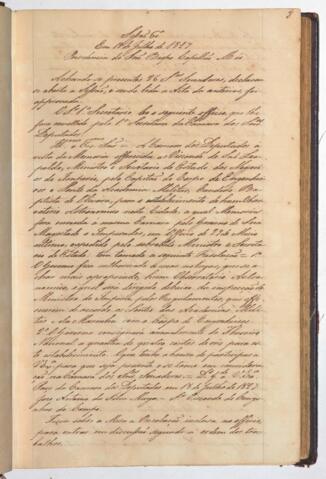 3
Sessão 62ª
Em 19 de Julho de 1827
Presidencia do Snr. Bispo Capellão Mór
Achando-se presentes 26 Snrs. Senadores, declarou-se
aberta a Sessão, e sendo lida a Acta da anterior, foi
approvada.
O Snr. 1º Secretario leo o seguinte officio, que lhe
fôra remettido pelo 1º Secretario da Camara dos Snrs.
Deputados
Illmo. e Exmo. Snr. - A Camara dos Deputados á
vista da Memoria offerecida a Visconde de São Leo-
poldo, Ministro e Secretario de Estado dos Negocios
do Imperio, pelo Capitão do Corpo de Engenheiros
e Lente da Academia Militar, Candido Bap-
tista de Oliveira, para o estabelecimento de hum Obser-
vatorio Astronomico nesta Cidade, a qual Memoria
fôra remettida a mesma Camara pelo Governo de Sua
Magestade o Imperador, em Officio de 29 de Maio
ultimo, expedido pelo sobredito Ministro e Secreta-
rio de Estado. Tem tomado a seguinte Resolução = 1º
O Governo fica authorisado a crear no lugar, que se a-
char mais apropriado, hum Observatorio Astro-
nomico, o qual será dirigido debaixo da inspecção do
Ministro do Imperio, pelo Regulamento, que
de accordo os Lentes das Academias Militar
e da Marinha com o Corpo de Engenheiros
2º O Governo consignará annualmente do Thesouro
Nacional a quantia de quatro contos de reis para es-
te estabelecimento. O que tenho a honra de participar a
VExª. para que seja presente e se tome em considera-
ção na Camara dos Snrs. Senadores. = Ds. Ge. a VExª.
Paço da Camara dos Deputados em 18 de Julho de 1827
José Antonio da Silva Maya = Snr. Visconde de Congo-
nhas do Campo.
Ficou sobre a Mesa a Resolução inclusa no officio,
para entrar em discussão segundo a ordem dos tra-
balhos.